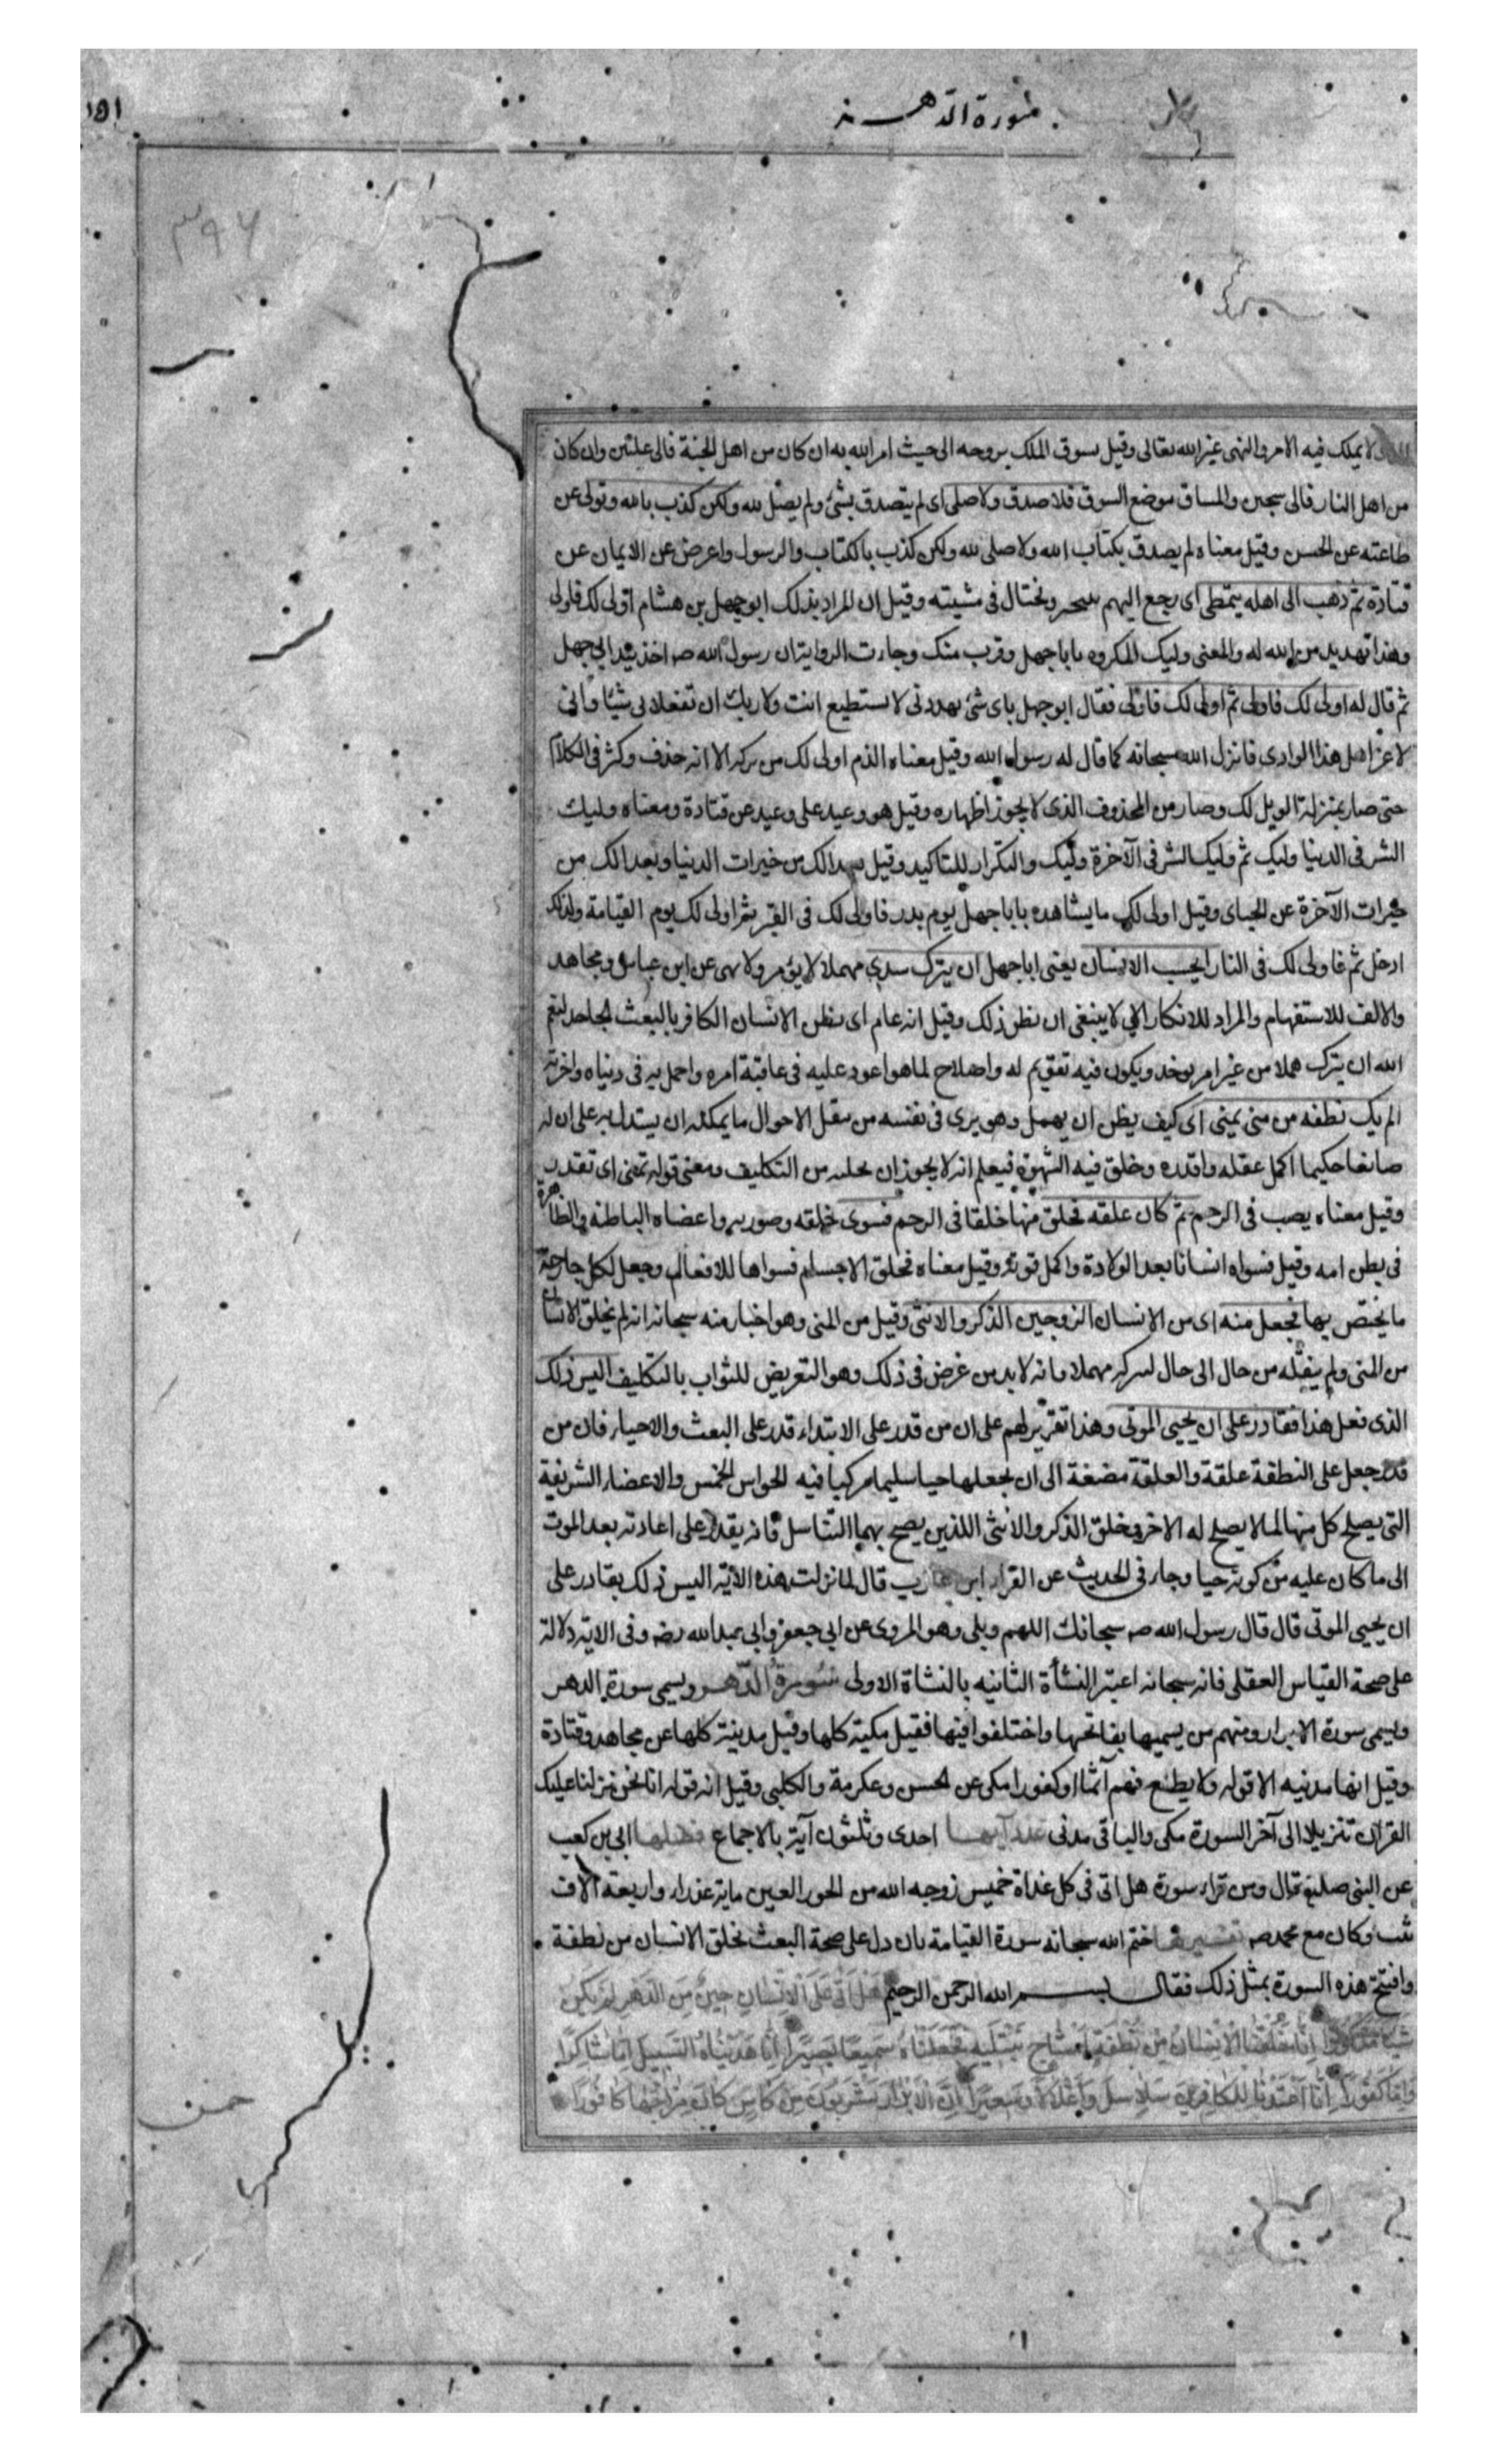 سورة الدهر
١٥١
٣٩٦
لا يملك فيه الامر والنهى غير الله تعالى وقيل يسوق الملك بروحه الى حيث امر الله به ان كان من اهل الجنة فالى عليين وان كان
من اهل النار فالى سجين والمساق موضع السوق فلا صدق ولا صلى اى لم يتصدق بشئ ولم يصل لله ولكن كذب بالله وتولى عن
طاعته عن الحسن وقيل معناه لم يصدق بكتاب الله ولا صلى لله ولكن كذب بالكتاب والرسول واعرض عن الايمان عن
قتادة ثم ذهب الى اهله يتمطى اى يرجع اليهم يتبختر ويختال فى مشيته وقيل ان المراد بذلك ابو جهل بن هشام اولى لك فاولى
وهذا تهديد من الله له والمعنى وليك المكروه يا با جهل وقرب منك وجاءت الرواية ان رسول الله صه اخذ بيد ابى جهل
ثم قال له اولى لك فاولى ثم اولى لك فاولى فقال ابو جهل باى شئ تهددنى لا تستطيع انت ولا ربك ان تفعلا بى شيئا وانى
لاعز اهل هذا الوادى فانزل الله سبحانه كما قال له رسول الله وقيل معناه الذم اولى لك من تركه الا انه حذف وكثر فى الكلام
حتى صار بمنزلة الويل لك وصار من المحذوف الذى لا يجوز اظهاره وقيل هو وعيد على وعيد عن قتادة ومعناه وليك
الشر فى الدنيا وليك ثم وليك الشر فى الآخرة وليك والتكرار للتاكيد وقيل بعدا لك من خيرات الدنيا وبعدا لك من
خيرات الآخرة عن الجباى وقيل اولى لك ما يشاهده يا با جهل يوم بدر فاولى لك فى القبر ثم اولى لك يوم القيامة ولذلك
ادخل ثم فاولى لك فى النار ايحسب الانسان يعنى ابا جهل ان يترك سدى مهملا لا يؤمر ولا ينهى عن ابن عباس ومجاهد
والالف للاستفهام والمراد للانكار اى لا ينبغى ان يظن ذلك وقيل انه عام اى يظن الانسان الكافر بالبعث الجاحد لنعم
الله ان يترك هملا من غير امر يوخذ ويكون فيه تقويم له واصلاح لما هو اعود عليه فى عاقبة امره واجمل به فى دنياه واخرته
الم يك نطفة من منى يمنى اى كيف يظن ان يهمل وهو يرى فى نفسه من تنقل الاحوال ما يمكنه ان يستدل به على ان له
صانعا حكيما اكمل عقله واقدره وخلق فيه الشهوة فيعلم انه لا يجوز ان يخليه من التكليف ومعنى قوله تمنى اى تقدر
وقيل معناه يصب فى الرحم ثم كان علقه فخلق منها خلقا فى الرحم فسوى خلقه وصورته واعضاه الباطنه والظاهرة
فى بطن امه وقيل فسواه انسانا بعد الولادة واكمل قوته وقيل معناه فخلق الاجسام فسواها للافعال وجعل لكل جارحة
ما يختص بها فجعل منه اى من الانسان الزوجين الذكر والانثى وقيل من المنى وهو اخبار منه سبحانه انه لم يخلق الانسان
من المنى ولم ينقله من حال الى حال ليتركه مهملا فانه لا بد من غرض فى ذلك وهو التعريض للثواب بالتكليف اليس ذلك
الذى فعل هذا فقادر على ان يحيى الموتى وهذا تقرير لهم على ان من قدر على الابتداء قدر على البعث والاحياء فان من
قدر جعل على النطفة علقة والعلقة مضغة الى ان يجعلها حيا سليما مركبا فيه الحواس الخمس والاعضاء الشريفة
التى يصلح كل منها لما لا يصلح له الاخر وخلق الذكر والانثى اللذين يصح بهما التناسل فانه يقدر على اعادته بعد الموت
الى ما كان عليه من كونه حيا وجاء فى الحديث عن القراء ابن عازب قال لما نزلت هذه الآية اليس ذلك بقادر على
ان يحيى الموتى قال قال رسول الله صه سبحانك اللهم وبلى وهو المروى عن ابى جعفر وابى عبد الله رضه وفى الاية دلالة
على صحة القياس العقلى فانه سبحانه اعتبر النشأة الثانيه بالنشاة الاولى سورة الدهر ويسمى سورة الدهر
وتسمى سورة الابرار ومنهم من يسميها بفاتحتها واختلفوا فيها فقيل مكية كلها وقيل مدنية كلها عن مجاهد وقتادة
وقيل انها مدنيه الا قوله ولا يطع منهم آثما او كفورا مكى عن الحسن وعكرمة والكلبى وقيل انه قوله انا نحن نزلنا عليك
القران تنزيلا الى آخر السورة مكى والباقى مدنى عدد آيها احدى وثلثون آية بالاجماع فضلها ابى بن كعب
عن النبى صلعم قال ومن قراء سورة هل اتى فى كل غداة خميس زوجه الله من الحور العين ماية عذراء واربعة الاف
ثيب وكان مع محمد صه تفسيرها ختم الله سبحانه سورة القيامة بان دل على صحة البعث بخلق الانسان من نطفة
وافتتح هذه السورة بمثل ذلك فقال بسم الله الرحمن الرحيم هَل اَتى عَلَى الاِنْسانِ حينٌ مِنَ الدَّهرِ لَم يَكُن
شَيئًا مَذكورًا اِنّا خَلَقنَا الاِنسانَ مِن نُطفَةٍ اَمشاجٍ نَبتَليهِ فَجَعَلناهُ سَميعًا بَصيرًا اِنّا هَدَيناهُ السَّبيلَ اِمّا شاكِرًا
وَاِمّا كَفورًا اِنّا اَعتَدنا لِلكافِرينَ سَلاسِلَ وَاَغلالًا وَسَعيرًا اِنَّ الاَبرارَ يَشرَبونَ مِن كَاسٍ كانَ مِزاجُها كافورًا